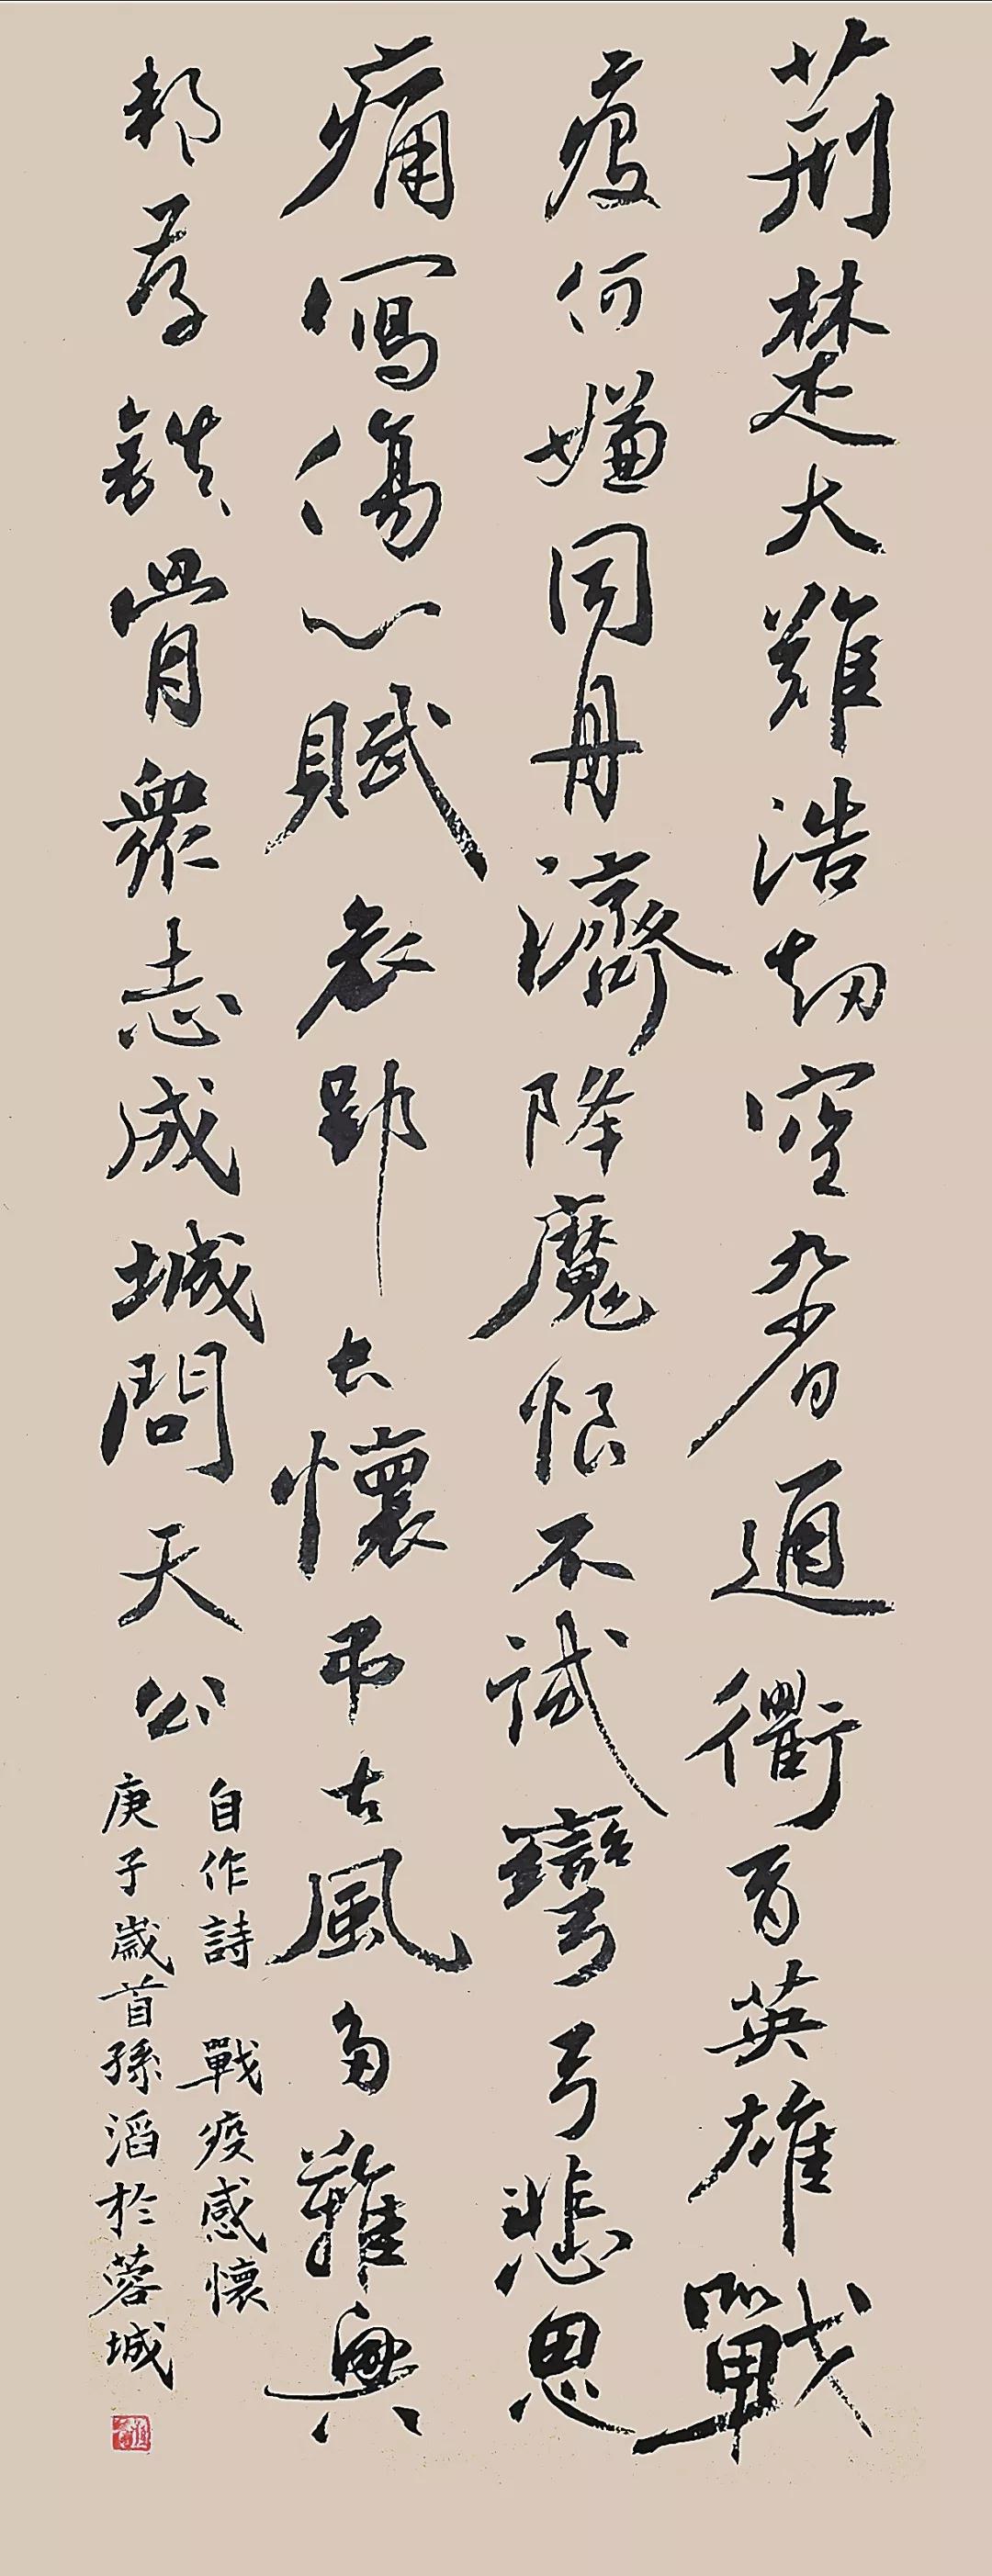 荊楚大難浩劫空九省通衢有英雄戰
疫何嫌同舟濟降魔恨不試彎弓悲思
痛寫傷心賦哀郢長懷弔古風多難興
邦存鐵骨眾志成城問天公
自作詩 戰疫感懷
庚子歲首孫滔於蓉城